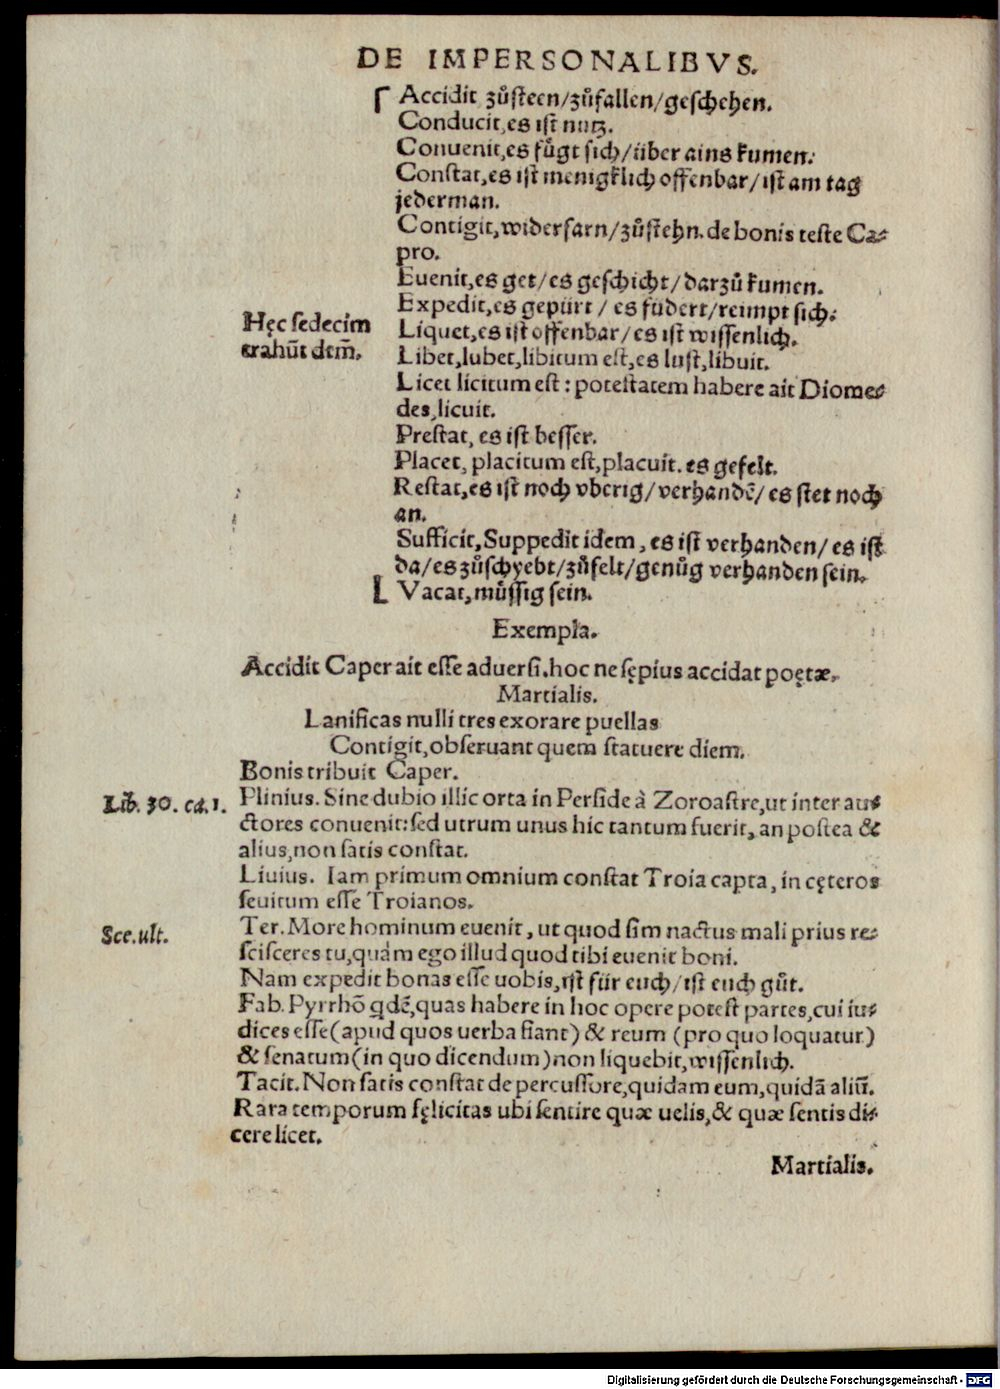 DE IMPERSONALIBVS.
Accidit zůſteen/zůfallen/geſchehen.
Conducit,es iſt nutz.
Conuenit,es fůgt sich/über ains kumen.
Conſtat,es iſt menigklich offenbar/iſt am tag
jederman.
Contigit,widerfarn/zůſtehn. de bonis teſte Ca-
pro.
Euenit,es get/es geſchicht/darzů kumen.
Expedit,es gepürt / es füdert/reimpt sich.
Hęc ſedecim
trahūt dem̄.
Liquet,es iſt offenbar/es iſt wiſſenlich.
Libet,lubet,libitum eſt,es luſt,libuit.
Licet licitum eſt : poteſtatem habere ait Diome-
des,licuit.
Preſtat, es iſt beſſer.
Placet, placitum eſt,placuit. es gefelt.
Reſtat,es iſt noch vberig/verhandē/es ſtet noch
an.
Sufficit,Suppedit idem, es iſt verhanden/es iſt
da/es zůſchyebt/zůfelt/genůg verhanden sein.
Vacat,můſſig sein.
Exempla.
Accidit Caper ait eſſe aduerſi.hoc ne ſępius accidat poętæ.
Martialis.
Lanificas nulli tres exorare puellas
Contigit,obſeruant quem ſtatuere diem.
Bonis tribuit Caper.
Lib. 30. ca.1.
Plinius. Sine dubio illic orta in Perſide à Zoroaſtre,ut inter au-
ctores conuenit:ſed utrum unus hic tantum fuerit, an poſtea &
alius,non ſatis conſtat.
Liuius. Iam primum omnium conſtat Troia capta, in cęteros
ſeuitum eſſe Troianos.
Sce.ult.
Ter. More hominum euenit, ut quod ſim nactus mali prius re-
ſciſceres tu,quàm ego illud quod tibi euenit boni.
Nam expedit bonas eſſe uobis,iſt für euch/iſt euch gůt.
Fab. Pyrrhō qdē,quas habere in hoc opere poteſt partes,cui iu-
dices eſſe(apud quos uerba fiant) & reum (pro quo loquatur)
& ſenatum(in quo dicendum)non liquebit,wiſſenlich.
Tacit. Non ſatis conſtat de percuſſore,quidam eum,quidā aliū.
Rara temporum fęlicitas ubi ſentire quæ uelis,& quæ ſentis di-
cere licet.
Martialis.
Digitalisierung gefördert durch die Deutsche Forschungsgemeinschaft - DFG